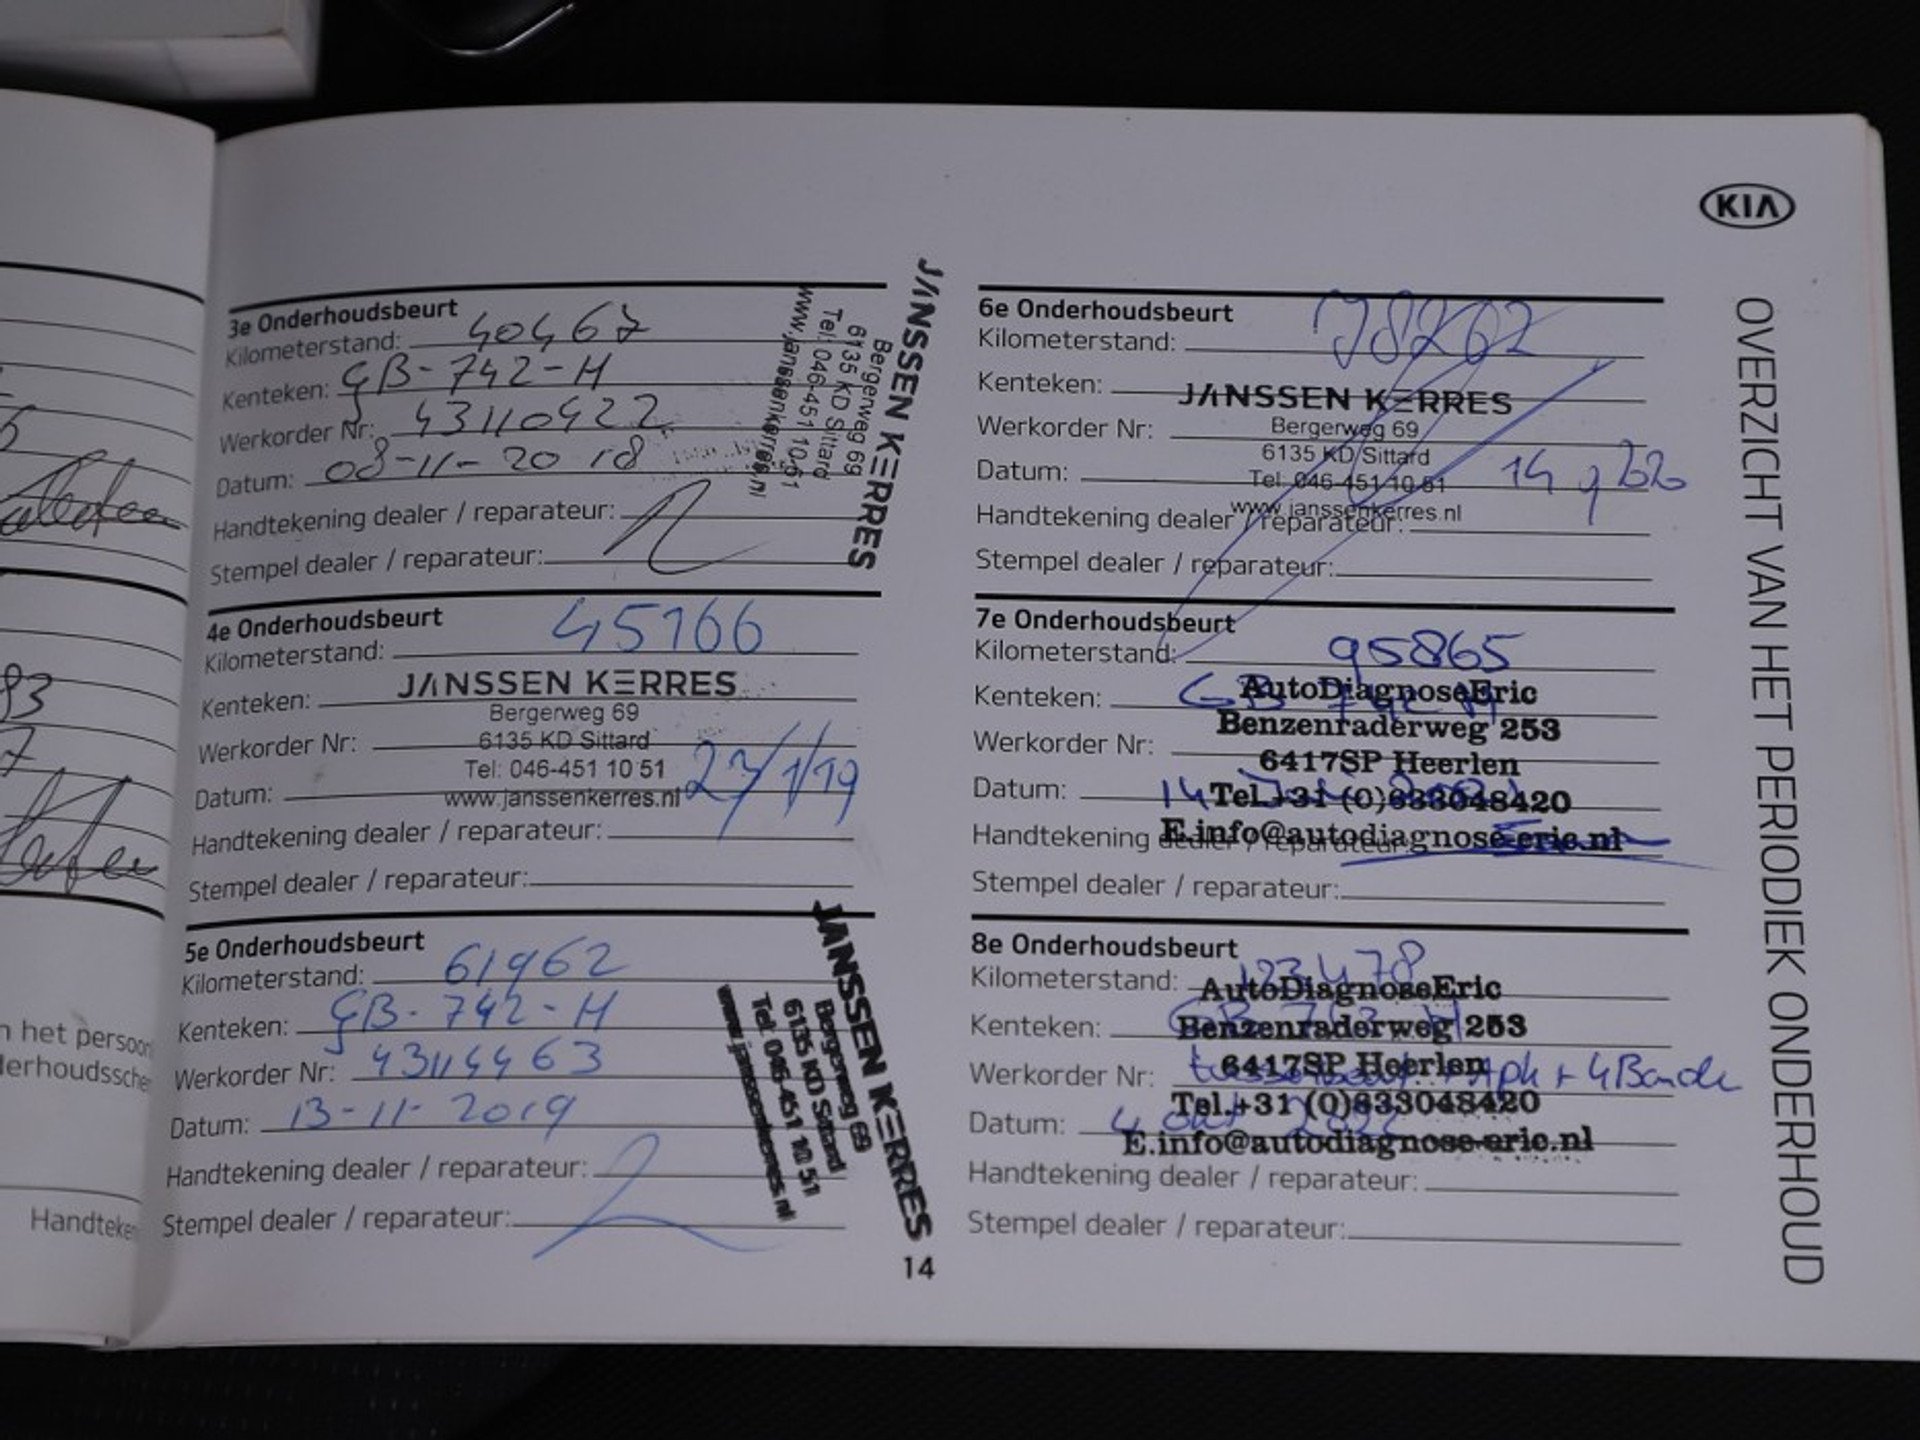 KIA
OVERZICHT VAN HET PERIODIEK ONDERHOUD
3e Onderhoudsbeurt
Kilometerstand: 40467
Kenteken: GB-742-H
Werkorder Nr: 43110422
Datum: 08-11-2018
Handtekening dealer / reparateur:
Stempel dealer / reparateur:
JANSSEN KERRES
Bergerweg 69
6135 KD Sittard
Tel: 046-451 10 51
www.janssenkerres.nl
4e Onderhoudsbeurt
Kilometerstand: 45166
Kenteken:
Werkorder Nr:
Datum: 23/1/19
Handtekening dealer / reparateur:
Stempel dealer / reparateur:
JANSSEN KERRES
Bergerweg 69
6135 KD Sittard
Tel: 046-451 10 51
www.janssenkerres.nl
5e Onderhoudsbeurt
Kilometerstand: 61962
Kenteken: GB-742-H
Werkorder Nr: 43114463
Datum: 13-11-2019
Handtekening dealer / reparateur:
Stempel dealer / reparateur:
JANSSEN KERRES
Bergerweg 69
6135 KD Sittard
Tel: 046-451 10 51
www.janssenkerres.nl
14
6e Onderhoudsbeurt
Kilometerstand: 78262
Kenteken:
Werkorder Nr:
Datum: 14 9
Handtekening dealer / reparateur:
Stempel dealer / reparateur:
JANSSEN KERRES
Bergerweg 69
6135 KD Sittard
Tel: 046-451 10 51
www.janssenkerres.nl
7e Onderhoudsbeurt
Kilometerstand: 95865
Kenteken: GB
Werkorder Nr:
Datum: 14
Handtekening dealer / reparateur:
Stempel dealer / reparateur:
AutoDiagnoseEric
Benzenraderweg 253
6417SP Heerlen
Tel.+31 (0)633048420
E.info@autodiagnose-eric.nl
8e Onderhoudsbeurt
Kilometerstand: 123478
Kenteken: GB
Werkorder Nr: + Apk + 4 Bande
Datum: 4 okt
Handtekening dealer / reparateur:
Stempel dealer / reparateur:
AutoDiagnoseEric
Benzenraderweg 253
6417SP Heerlen
Tel.+31 (0)633048420
E.info@autodiagnose-eric.nl
Handteken